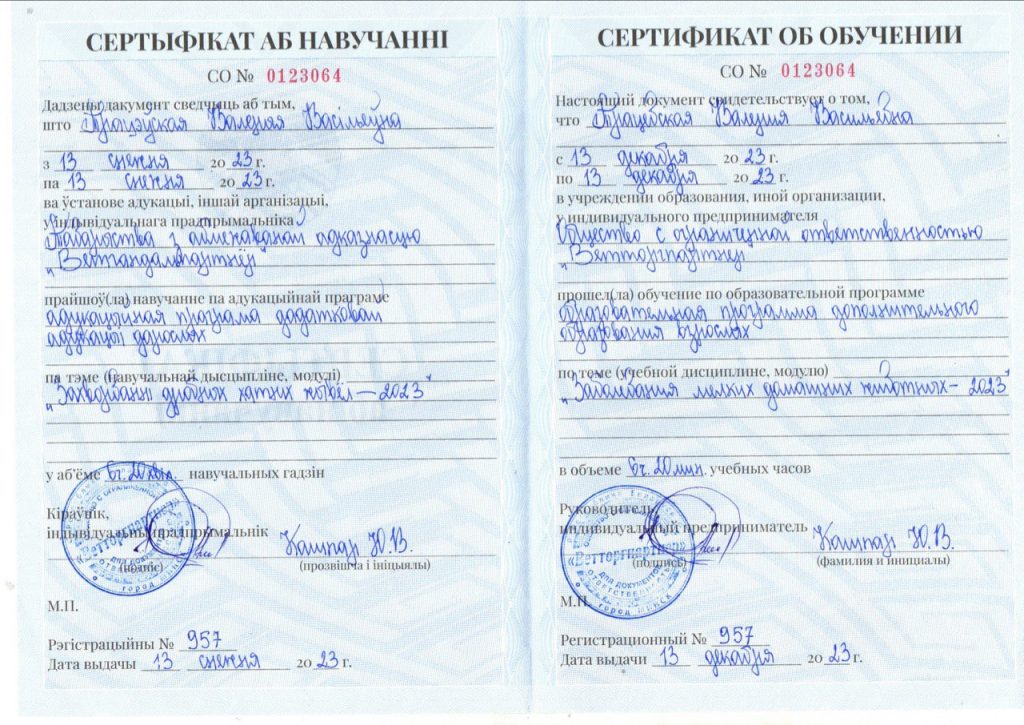 СЕРТЫФІКАТ АБ НАВУЧАННІ
СО № 0123064
Дадзены дакумент сведчыць аб тым,
што Валерыя Васільеўна
з 13 снежня 20 23 г.
па 13 снежня 20 23 г.
ва ўстанове адукацыі, іншай арганізацыі,
у індывідуальнага прадпрымальніка
Таварыства з абмежаванай адказнасцю
прайшоў(ла) навучанне па адукацыйнай праграме
адукацыйная праграма дадатковай
адукацыі дарослых
па тэме (навучальнай дысцыпліне, модулі)
"Захворванні дробных хатніх жывёл — 2023"
у аб'ёме 6ч. 20хвіл. навучальных гадзін
Кіраўнік,
індывідуальны прадпрымальнік
Кашпар Ю.В.
(подпіс) (прозвішча і ініцыялы)
М.П.
Рэгістрацыйны № 957
Дата выдачы 13 снежня 20 23 г.
СЕРТИФИКАТ ОБ ОБУЧЕНИИ
СО № 0123064
Настоящий документ свидетельствует о том,
что Валерия Васильевна
с 13 декабря 20 23 г.
по 13 декабря 20 23 г.
в учреждении образования, иной организации,
у индивидуального предпринимателя
Общество с ограниченной ответственностью
"Ветторгпартнер"
прошел(ла) обучение по образовательной программе
образовательная программа дополнительного
образования взрослых
по теме (учебной дисциплине, модулю)
"Заболевания мелких домашних животных – 2023"
в объеме 6ч. 20мин. учебных часов
Руководитель,
индивидуальный предприниматель
Кашпар Ю.В.
(подпись) (фамилия и инициалы)
М.П.
Регистрационный № 957
Дата выдачи 13 декабря 20 23 г.
«Ветторгпартнер»
ДЛЯ ДОКУМЕНТОВ
город Минск